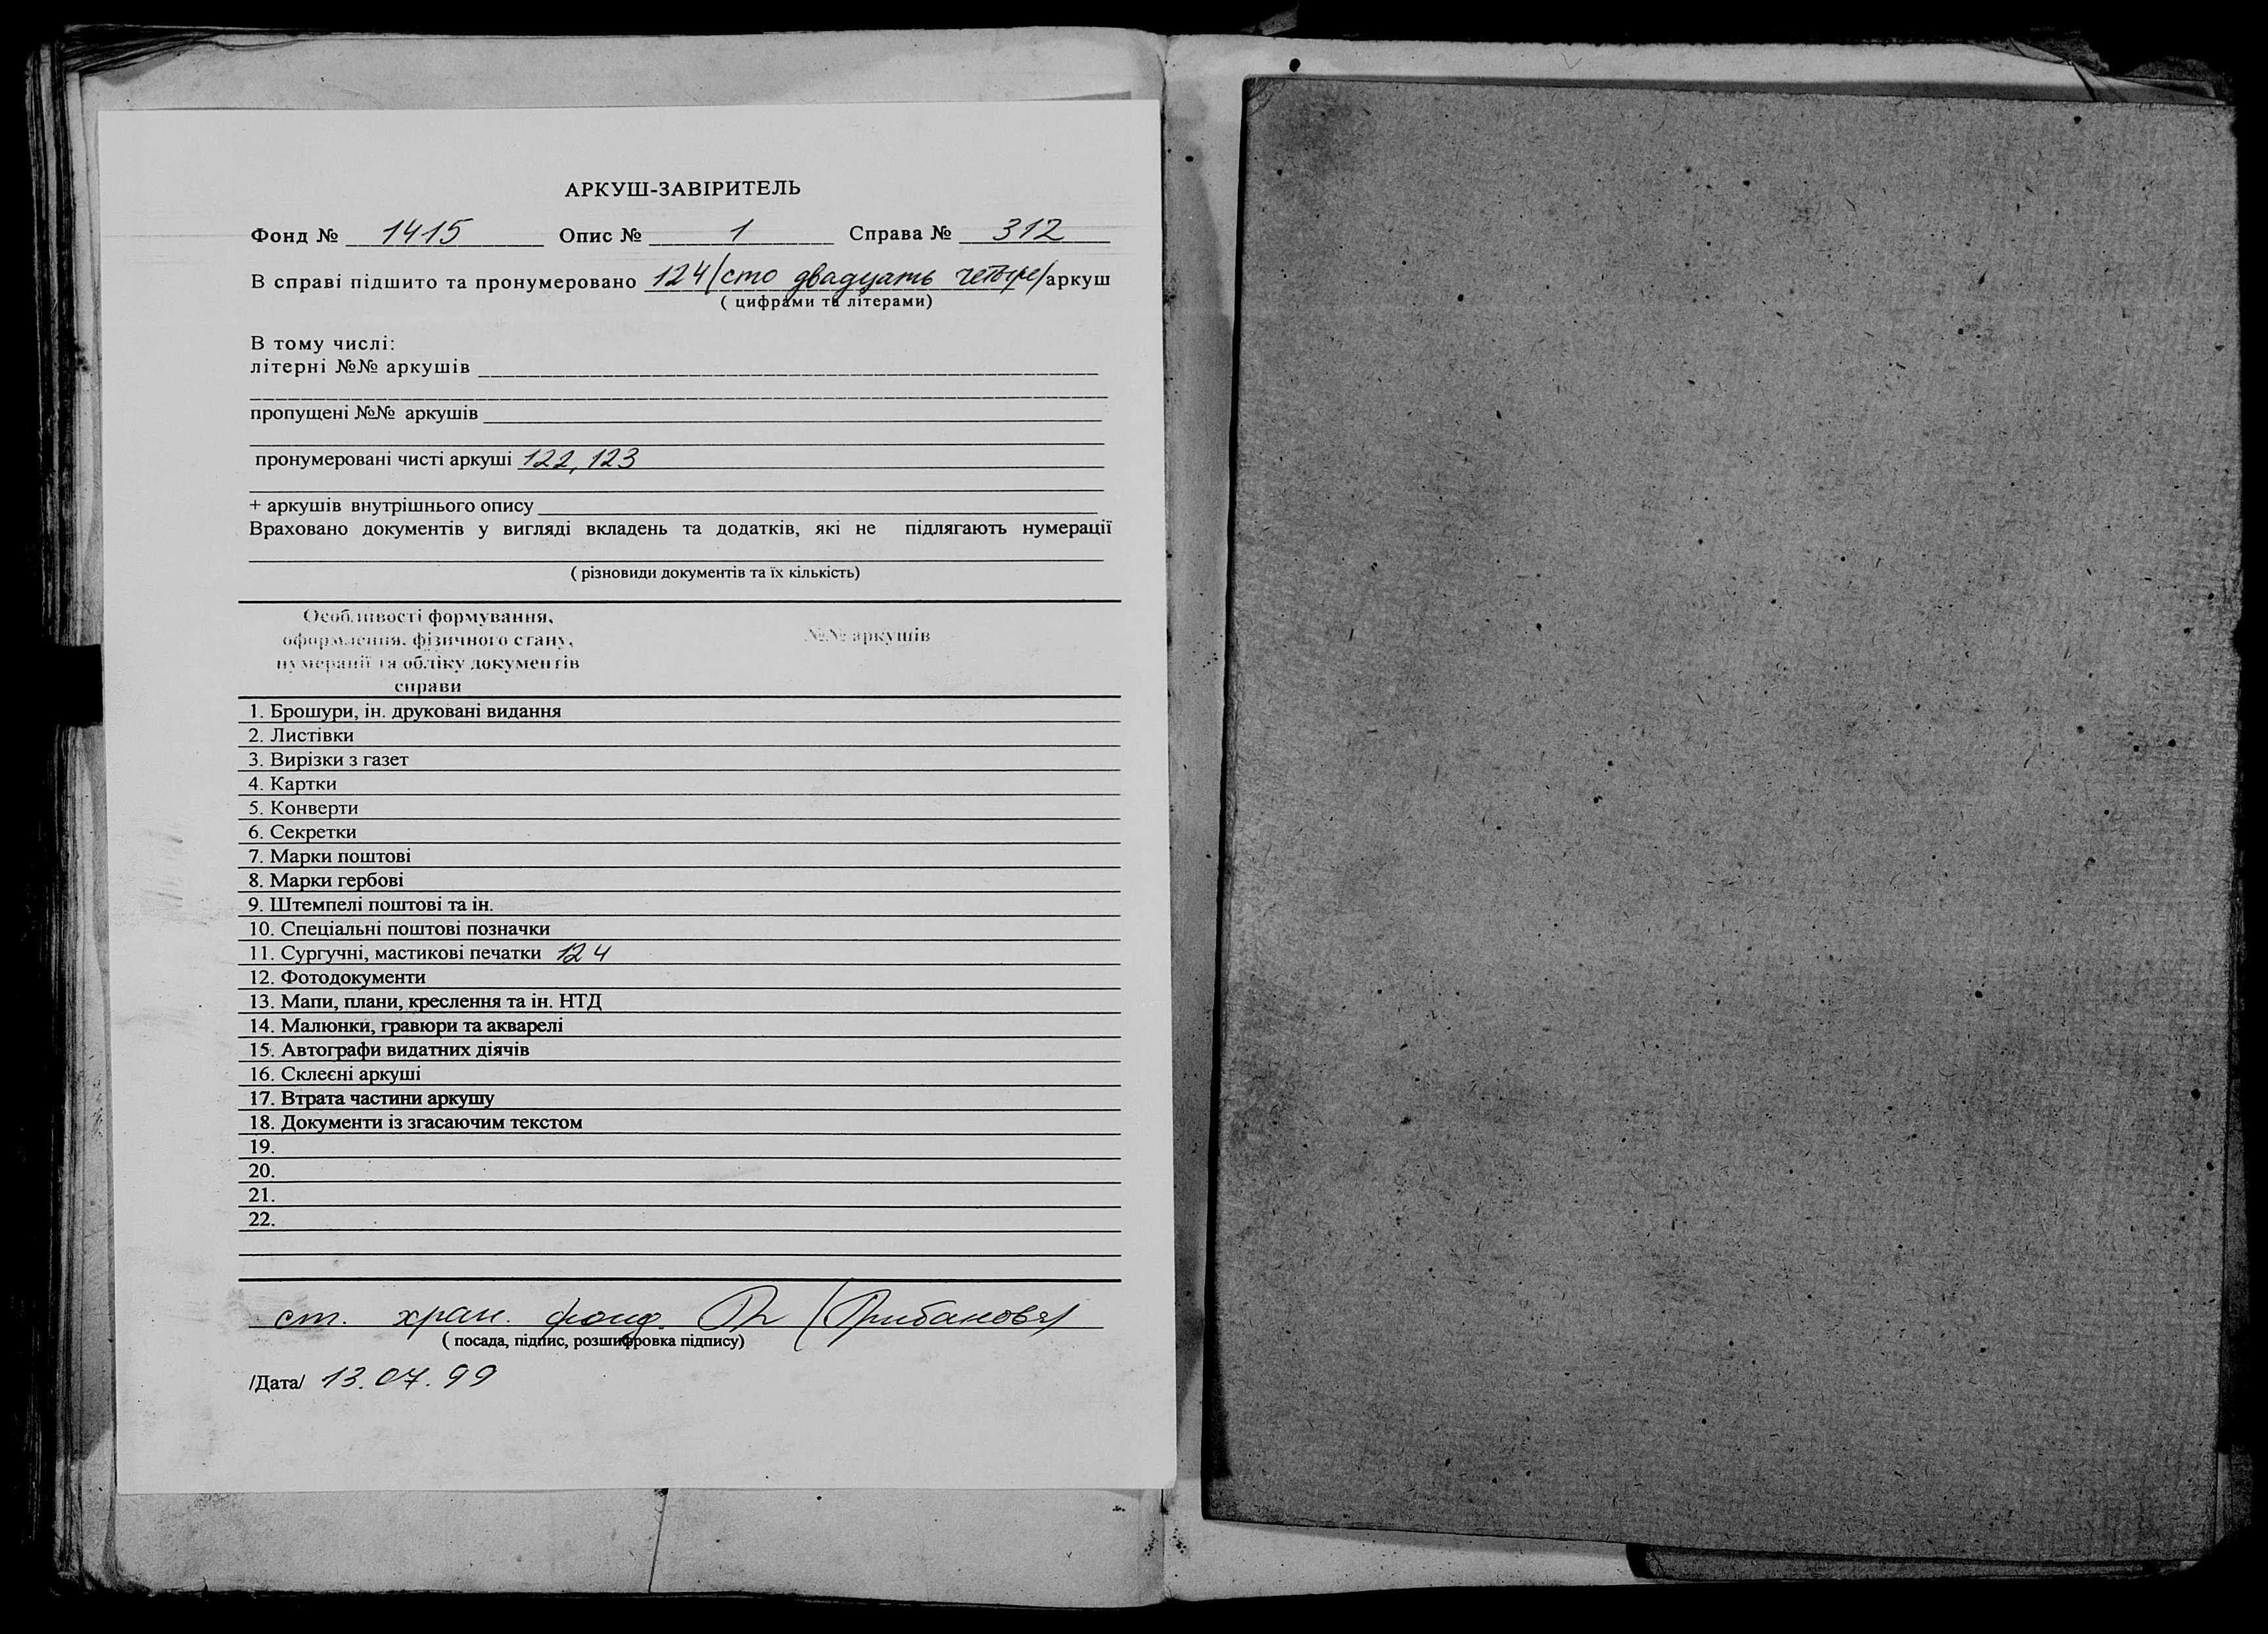 АРКУШ-ЗАВІРИТЕЛЬ
Фонд № 1415 Опис № 1 Справа № 312
В справі підшито та пронумеровано 124 /сто двадцать четыре/ аркуш
( цифрами та літерами)
В тому числі:
літерні №№ аркушів
пропущені №№ аркушів
пронумеровані чисті аркуші 122, 123
+ аркушів внутрішнього опису
Враховано документів у вигляді вкладень та додатків, які не підлягають нумерації
( різновиди документів та їх кількість)
Особливості формування,
оформлення, фізичного стану,
нумерації та обліку документів
справи
№№ аркушів
1. Брошури, ін. друковані видання
2. Листівки
3. Вирізки з газет
4. Картки
5. Конверти
6. Секретки
7. Марки поштові
8. Марки гербові
9. Штемпелі поштові та ін.
10. Спеціальні поштові позначки
11. Сургучні, мастикові печатки 124
12. Фотодокументи
13. Мапи, плани, креслення та ін. НТД
14. Малюнки, гравюри та акварелі
15. Автографи видатних діячів
16. Склеєні аркуші
17. Втрата частини аркушу
18. Документи із згасаючим текстом
19.
20.
21.
22.
ст. хран. фонд.
( посада, підпис, розшифровка підпису)
/Дата/ 13.07.99